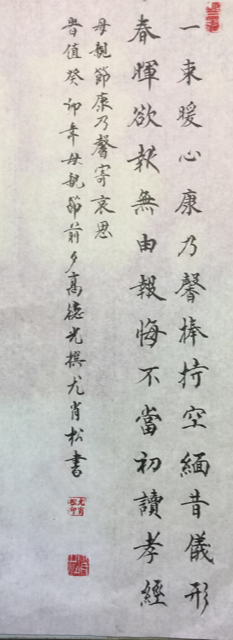 一束暖心康乃馨捧持空緬昔儀形
春暉欲報無由報悔不當初讀孝經
母親節康乃馨寄哀思
昔值癸卯年母親節前夕高德光撰尤肖松書